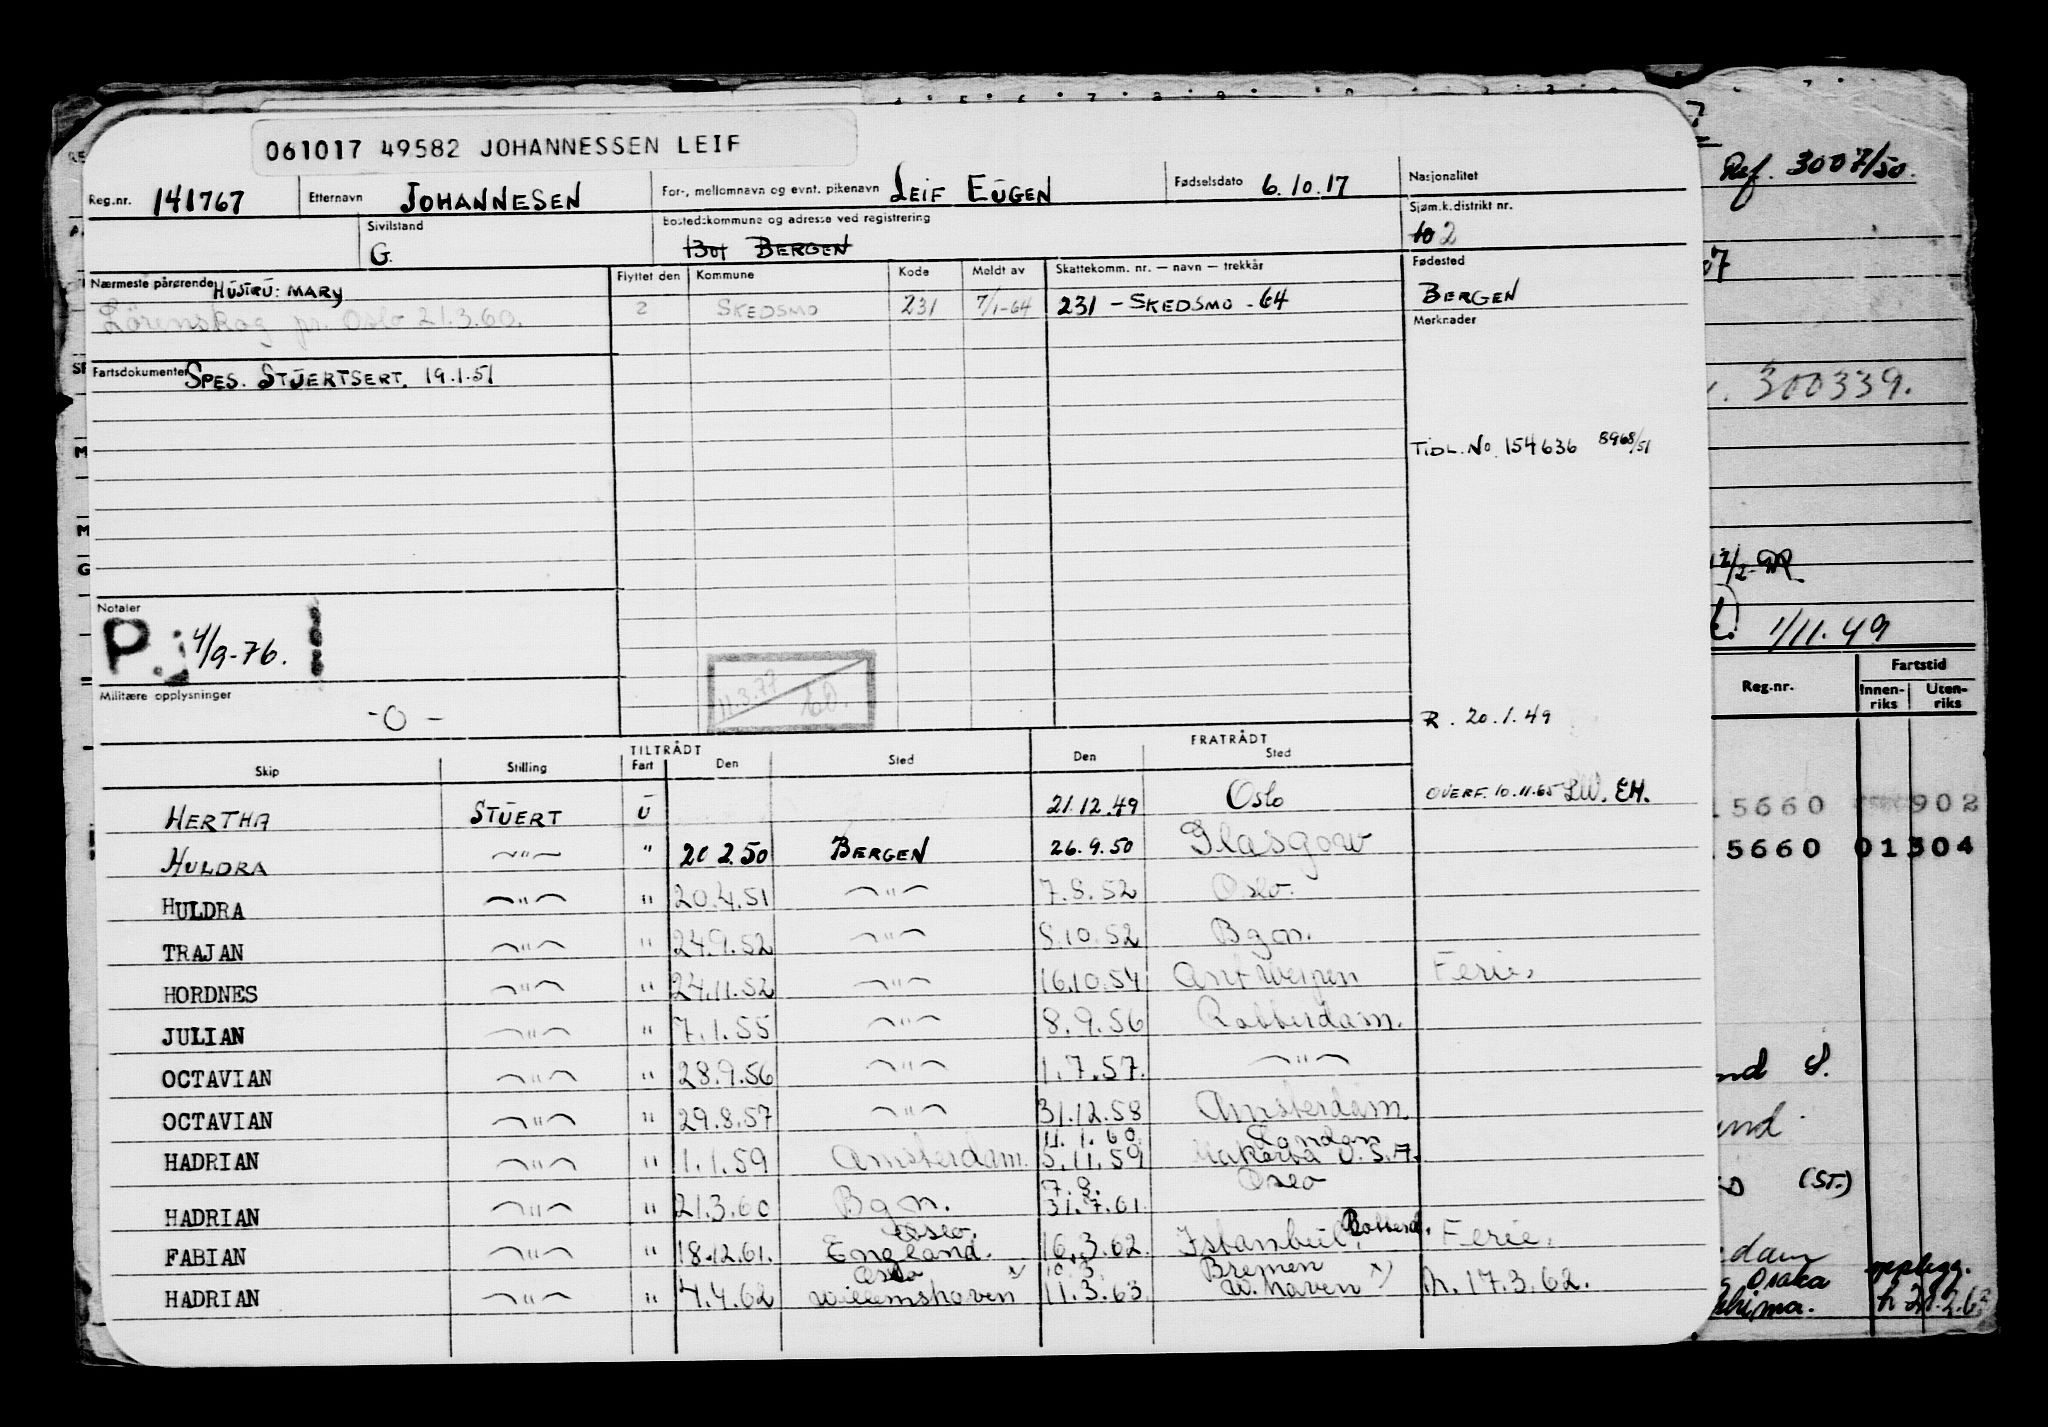 061017 49582 JOHANNESSEN LEIF
Ref. 3007/50.
Reg.nr. 141767 Etternavn JOHANNESEN For-, mellomnavn og evnt. pikenavn LEIF EUGEN Fødselsdato 6.10.17 Nasjonalitet
Sivilstand G. Bostedskommune og adresse ved registrering 1301 BERGEN Sjøm.k.distrikt nr. 10 2
Nærmeste pårørende HUSTRU: MARY Flyttet den Kommune Kode Meldt av Skattekomm. nr. — navn — trekkår Fødested
Lörenskog pr. Oslo 21.3.60. 2 SKEDSMO 231 7/1-64 231 - SKEDSMO - 64 BERGEN
Merknader
Fartsdokumenter SPES. STUERTSERT. 19.1.51
300339.
TIDL. NO. 154636 8968/51
Notater
P. 4/9-76.
1/11.49
Militære opplysninger
- O -
11.3.77
R. 20.1.49
Reg.nr. Fartstid
Innen-riks Uten-riks
TILTRÅDT FRATRÅDT
Skip Stilling Fart Den Sted Den Sted
HERTHA STUERT U 21.12.49 Oslo OVERF. 10.11.65 LW. EH.
5660 902
HULDRA —"— " 20 2.50 BERGEN 26.9.50 Glasgow
5660 01304
HULDRA —"— " 20.4.51 —"— 7.8.52 Oslo.
TRAJAN —"— " 24.9.52 —"— 8.10.52 Bgn.
HORDNES —"— " 24.11.52 —"— 16.10.54 Antwerpen Ferie.
JULIAN —"— " 7.1.55 —"— 8.9.56 Rotterdam.
OCTAVIAN —"— " 28.9.56 —"— 1.7.57. —"—
OCTAVIAN —"— " 29.8.57 —"— 31.12.58 Amsterdam.
11.1.60. London
HADRIAN —"— " 1.1.59 Amsterdam. 5.11.59 U.S.A.
7.8. Oslo
HADRIAN —"— " 21.3.60 Bgn. 31.7.61
(ST.)
Oslo. Rotterd.
FABIAN —"— " 18.12.61. England. 16.3.62. Istanbul. Ferie.
Oslo x) 10.3. Bremen
HADRIAN —"— " 4.4.62 Willemshaven 11.3.63. W. Haven x) h. 17.3.62.
Osaka